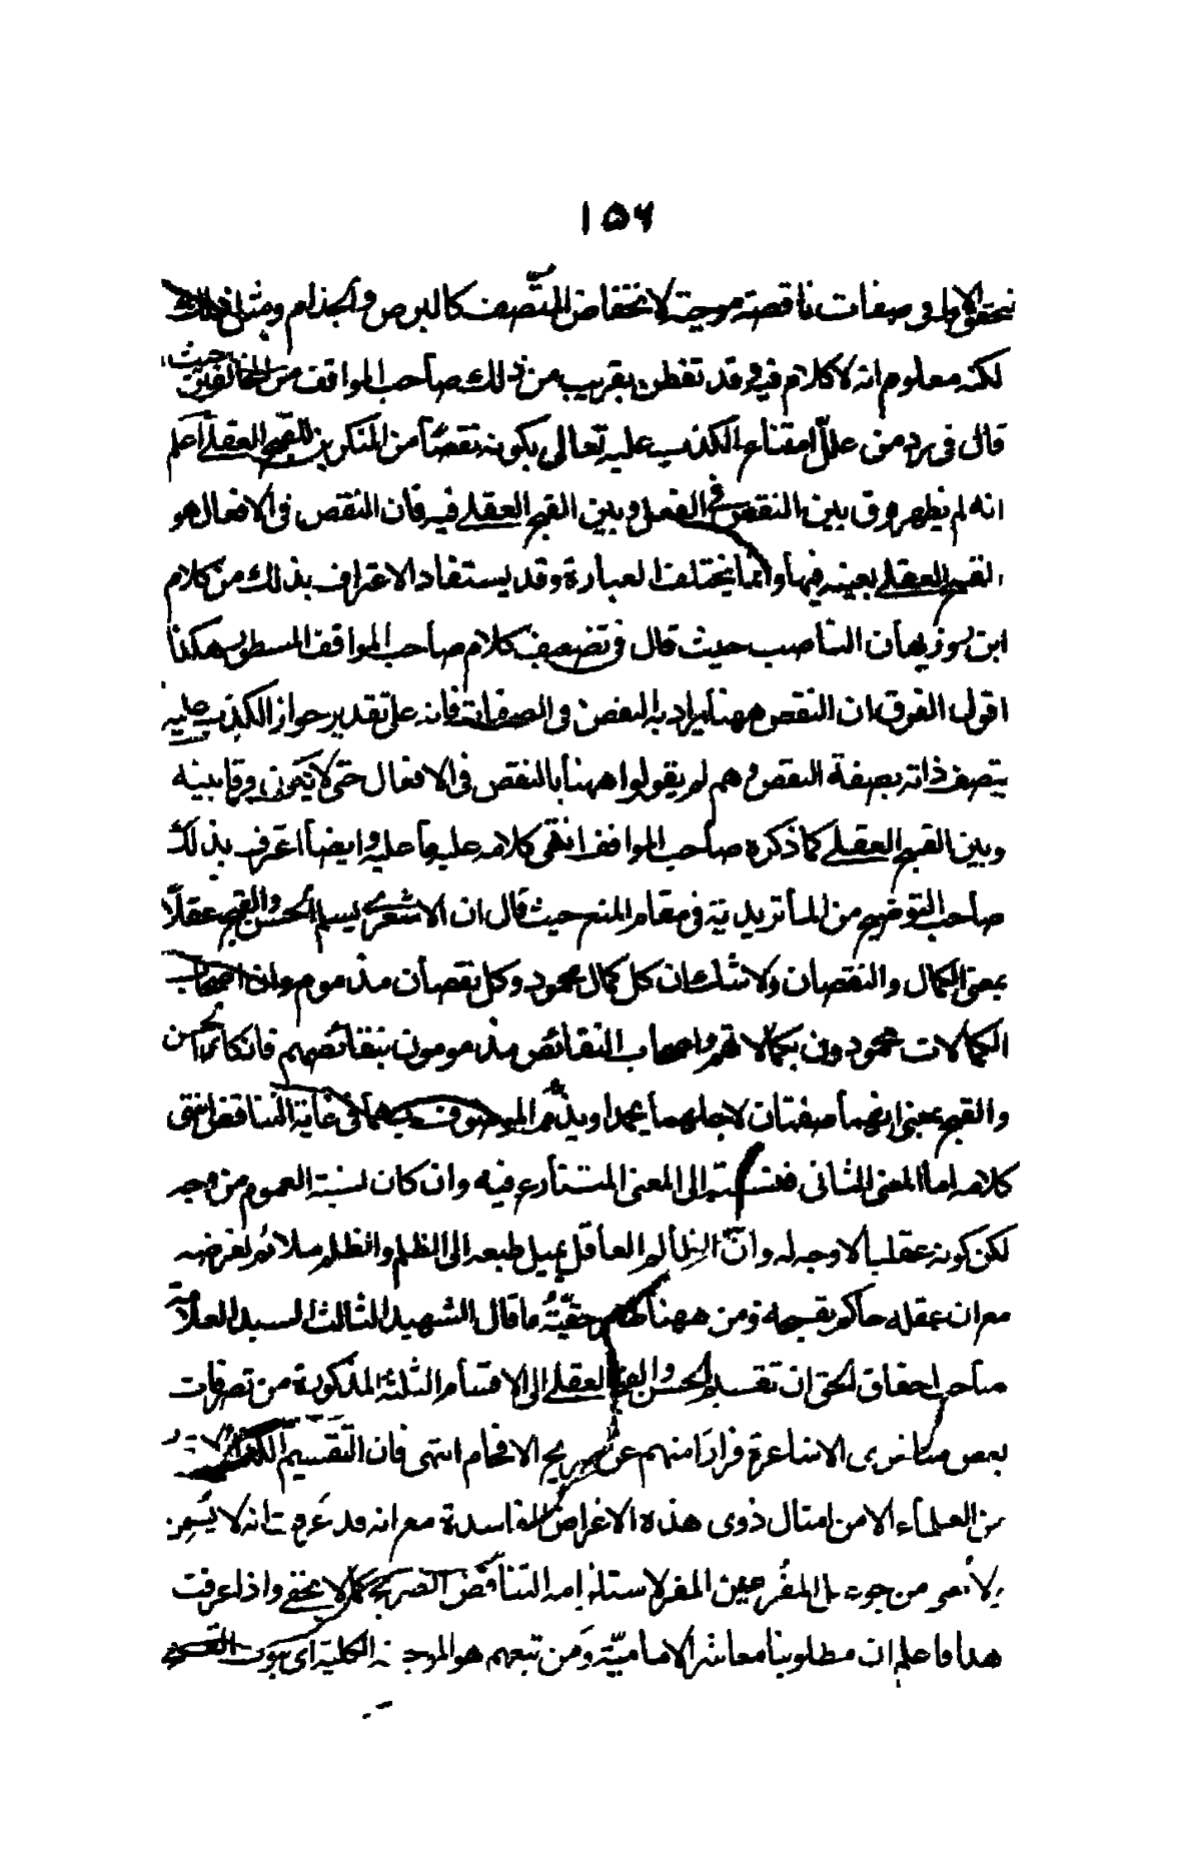 ١٥٦
صفات ناقصة موجبة لانخفاض المتصف كالبرص والجذام
لكنه معلوم انه لا كلام فيه وقد تفطن بقريب من ذلك صاحب المواقف من المخالفين حيث
قال فى رد من علل امتناع الكذب عليه تعالى بكونه نقصا من المنكرين للقبح العقلي اعلم
انه لم يظهر فرق بين النقص في الفعل وبين القبح العقلي فيه فان النقص فى الافعال هو
القبح العقلي بعينه فيها وانما يختلف العبارة وقد يستفاد الاعتراف بذلك من كلام
ابن روزبهان الناصب حيث قال فى تضعيف كلام صاحب المواقف المسطور هكذا
اقول الفرق ان النقص ههنا يراد به النقص فى الصفات فانه على تقدير جواز الكذب عليه
يتصف ذاته بصفة النقص وهم لم يقولوا ههنا بالنقص فى الافعال حتى لا يكون فرقا بينه
وبين القبح العقلي كما ذكره صاحب المواقف انتهى كلامه عليه ما عليه وايضا اعترف بذلك
صاحب التوضيح من الماتريدية فى مقام المنع حيث قال ان الاشعري يسلم الحسن والقبح عقلا
بمعنى الكمال والنقصان ولا شك ان كل كمال محمود وكل نقصان مذموم وان اصحاب
الكمالات محمودون بكمالاتهم واصحاب النقائص مذمومون بنقائصهم فانكاره الحسن
والقبح بمعنى انهما صفتان لاجلهما يحمد او يذم الموصوف بهما فى غاية التناقض انتهى
كلامه اما المعنى الثانى فنسبته الى المعنى المتنازع فيه وان كان نسبة العموم من وجه
لكن كونه عقليا لا وجه له وان الظالم العاقل يميل طبعه الى الظلم والظلم ملائم لغرضه
مع ان عقله حاكم بقبحه ومن ههنا ظهر حقية ما قال الشهيد الثالث السيد العلامة
صاحب احقاق الحق ان تقسيم الحسن والقبح العقلي الى الاقسام الثلثة المذكورة من تصرفات
بعض متاخرى الاشاعرة فرارا منهم عن صريح الافحام انتهى فان التقسيم
من العلماء الا من امثال ذوى هذه الاغراض الفاسدة مع انه قد عرفت انه لا يسمن
ولا يغنى من جوع بل المفر عين المقر لاستلزامه التناقض الصريح كما لا يخفى واذا عرفت
هذا فاعلم ان مطلوبنا معاشر الامامية ومن تبعهم هو الموجبة الكلية اى ثبوت